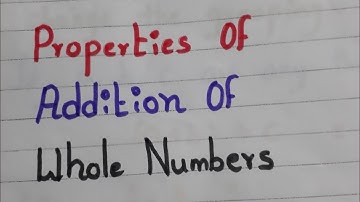 Properties Of
Addition Of
Whole Numbers